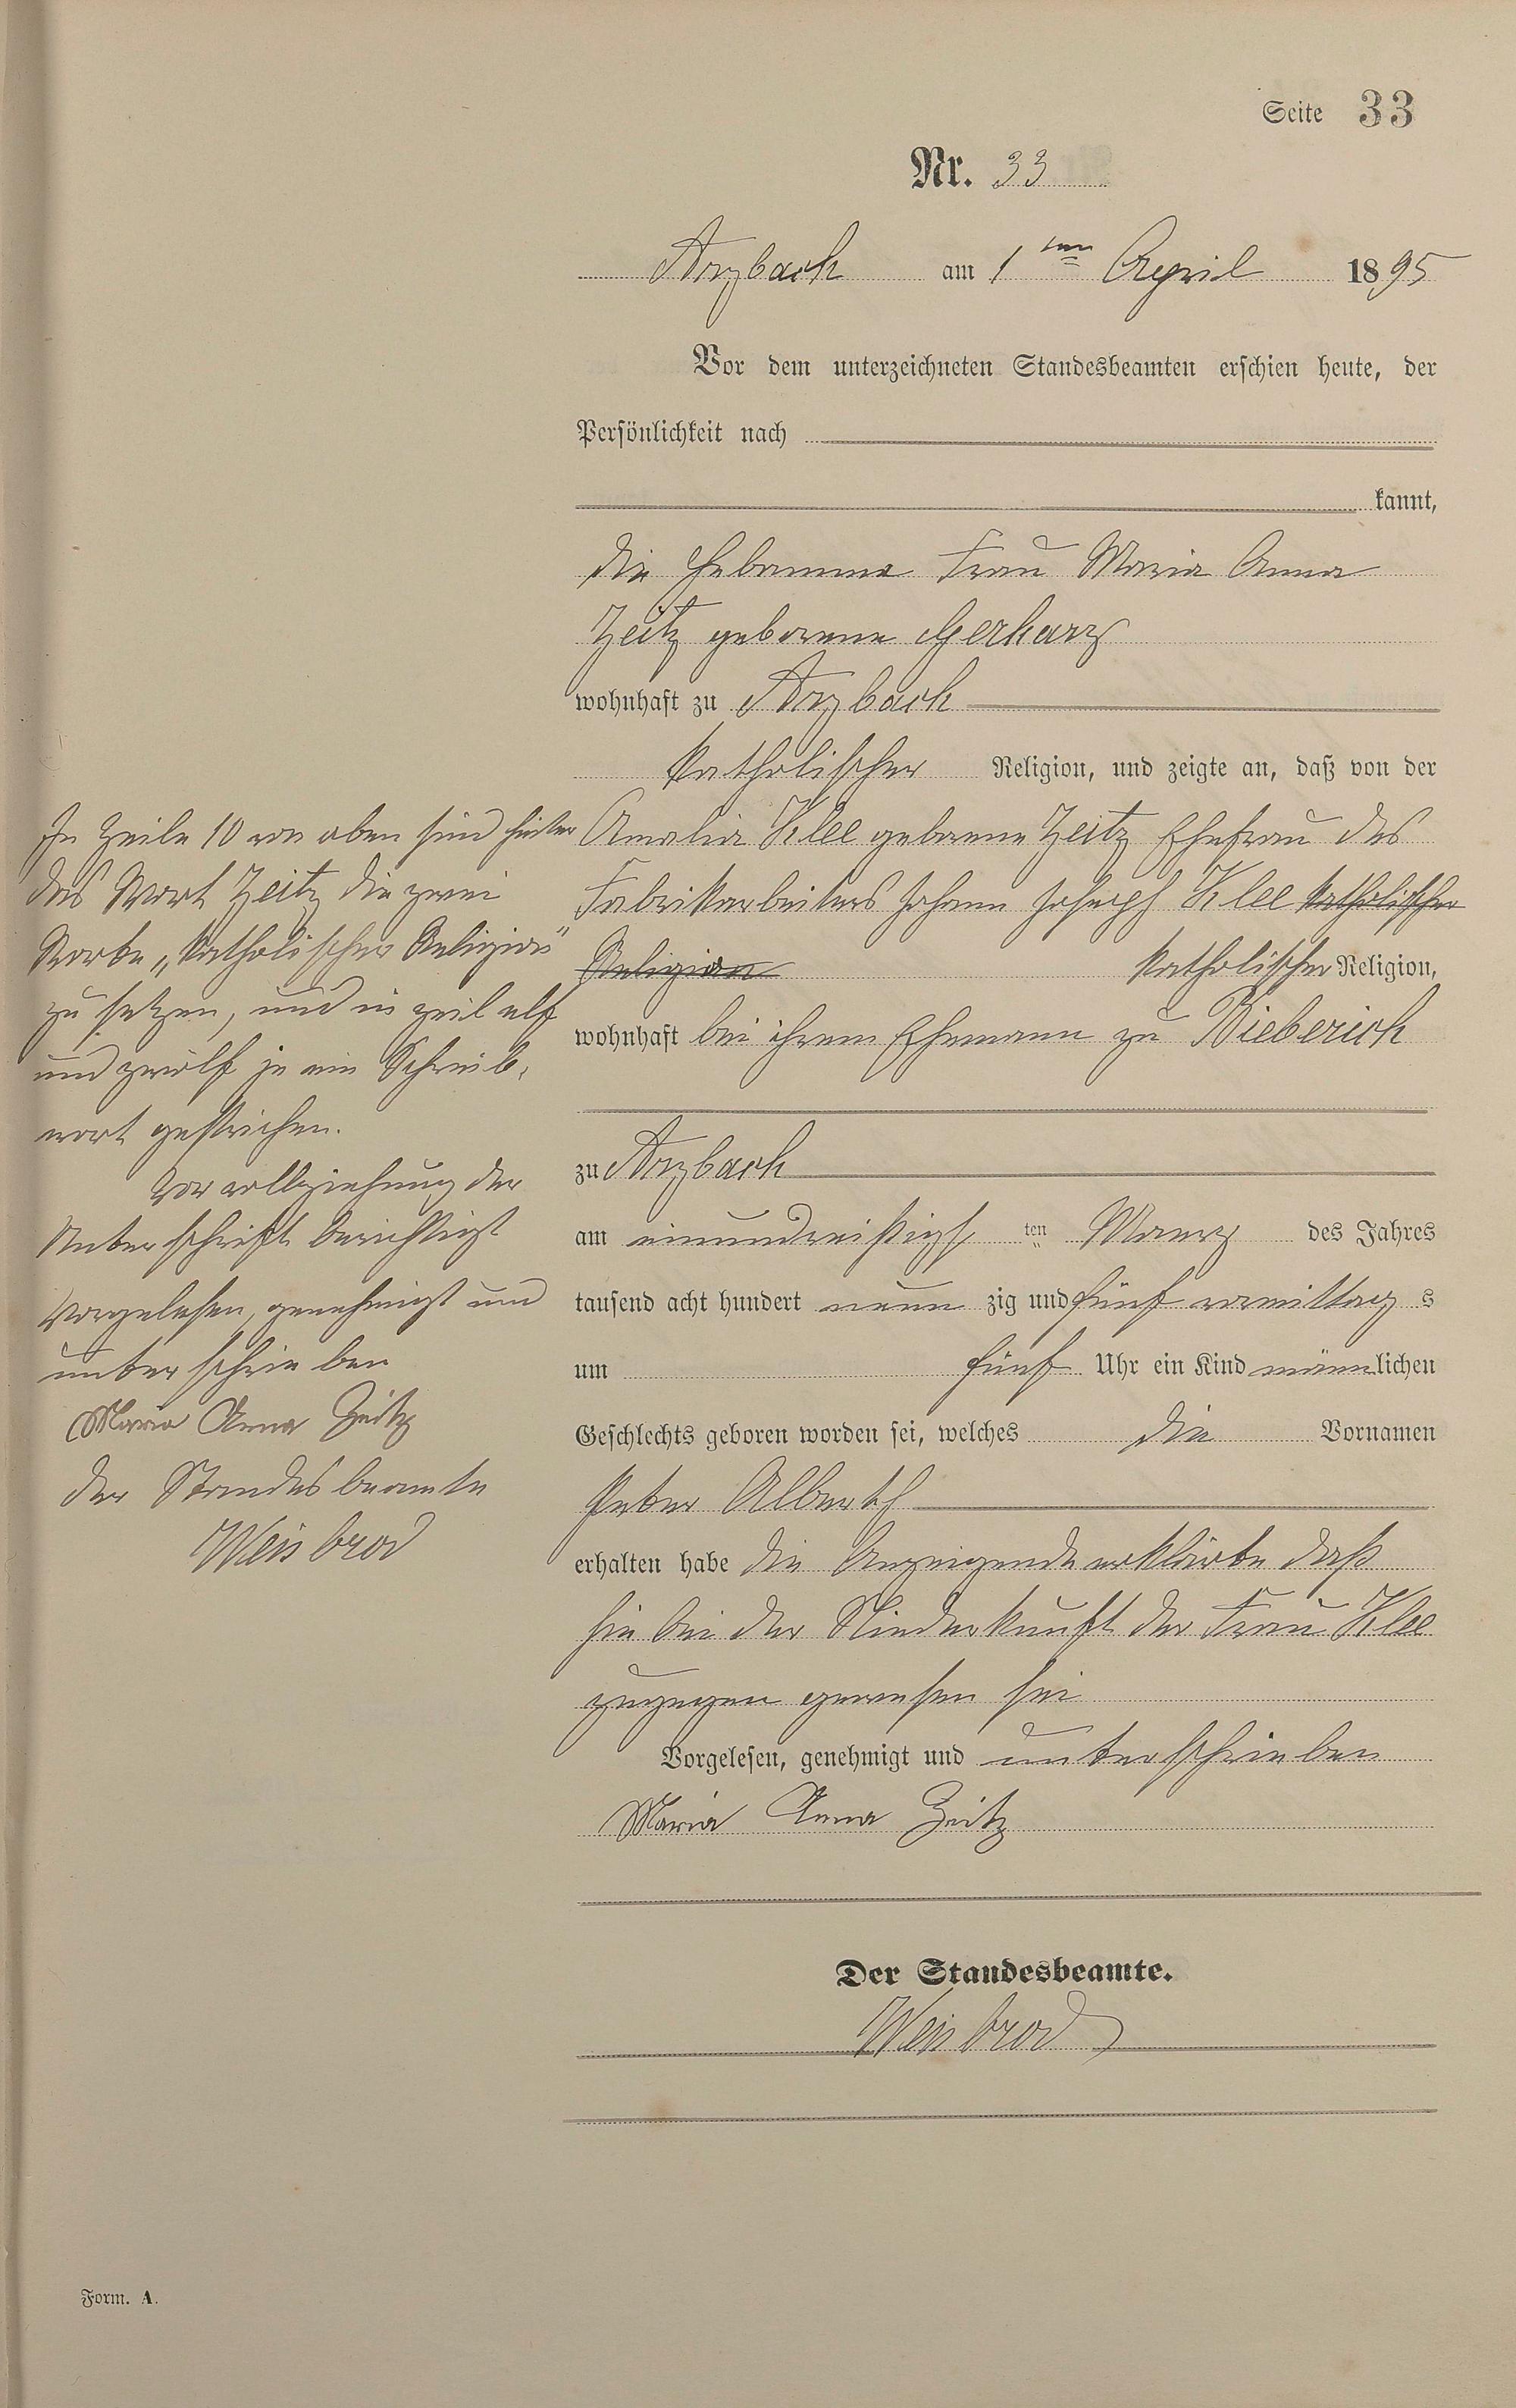 Seite 33
Nr. 33
Arzbach am 1ten April 1895
Vor dem unterzeichneten Standesbeamten erschien heute, der
Persönlichkeit nach
kannt,
die Hebamme Frau Maria Anna
Zeitz geborene Gerharz
wohnhaft zu Arzbach
katholischer Religion, und zeigte an, daß von der
Amalia Klee geborene Zeitz Ehefrau des
Fabrikarbeiters Johann Joseph Klee katholischer
Religion katholischer Religion,
wohnhaft bei ihrem Ehemann zu Bieberich
zu Arzbach
am einunddreißigs ten Maerz des Jahres
tausend acht hundert neun zig und fünf vormittag s
um fünf Uhr ein Kind männlichen
Geschlechts geboren worden sei, welches die Vornamen
Peter Alberth
erhalten habe die Anzeigende erklärte daß
sie bei der Niederkunft der Frau Klee
zugegen gewesen sei
Vorgelesen, genehmigt und unterschrieben
Maria Anna Zeitz
Der Standesbeamte.
Weisbrod
In Zeile 10 von oben sind hinter
das Wort Zeitz die zwei
Worte „katholischer Religion“
zu setzen, und in zeil elf
und zwölf je ein Schreib,
wort gestrichen.
Vor vollziehung der
Unterschrift berichtigt
Vorgelesen, genehmigt und
unterschrieben
Maria Anna Zeitz
Der Standesbeamte
Weisbrod
Form. A.